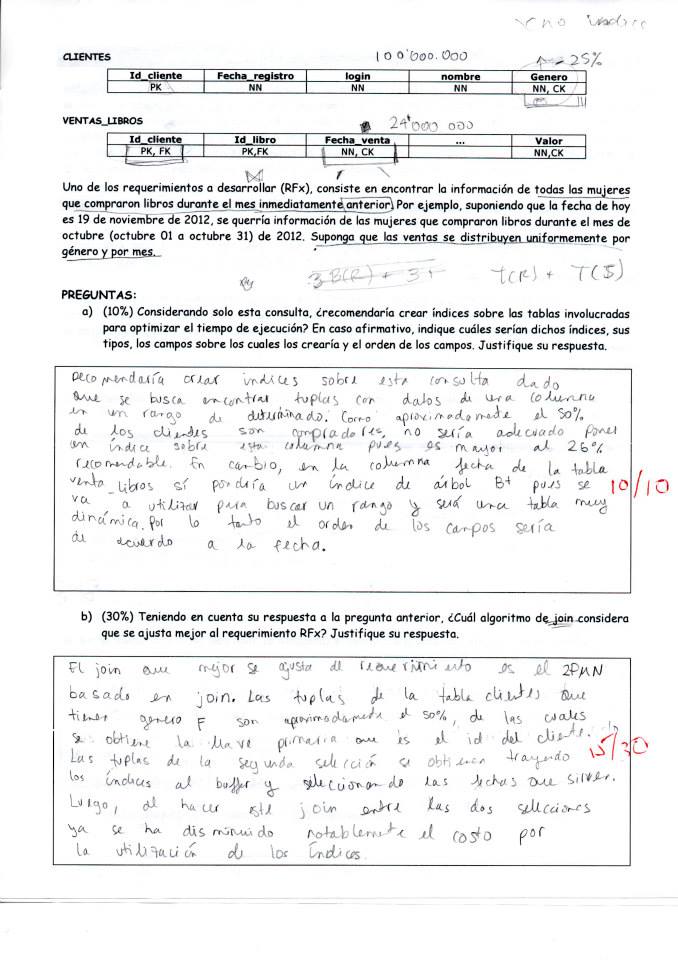 no indice
CLIENTES 100'000.000 25%
Id_cliente Fecha_registro login nombre Genero
PK NN NN NN NN, CK
VENTAS_LIBROS 24'000 000
Id_cliente Id_libro Fecha_venta ... Valor
PK, FK PK,FK NN, CK NN,CK
Uno de los requerimientos a desarrollar (RFx), consiste en encontrar la información de todas las mujeres
que compraron libros durante el mes inmediatamente anterior. Por ejemplo, suponiendo que la fecha de hoy
es 19 de noviembre de 2012, se querría información de las mujeres que compraron libros durante el mes de
octubre (octubre 01 a octubre 31) de 2012. Suponga que las ventas se distribuyen uniformemente por
género y por mes.
3B(R) + 3+ T(R) + T(S)
PREGUNTAS:
a) (10%) Considerando solo esta consulta, ¿recomendaría crear índices sobre las tablas involucradas
para optimizar el tiempo de ejecución? En caso afirmativo, indique cuáles serían dichos índices, sus
tipos, los campos sobre los cuales los crearía y el orden de los campos. Justifique su respuesta.
Recomendaría crear índices sobre esta consulta dado
que se busca encontrar tuplas con datos de una columna
en un rango de determinado. Como aproximadamente el 50%
de los clientes son compradores, no sería adecuado poner
un índice sobre esta columna pues es mayor al 25%
recomendable. En cambio, en la columna fecha de la tabla
venta_libros sí pondría un índice de árbol B+ pues se
va a utilizar para buscar un rango y será una tabla muy
dinámica. Por lo tanto el orden de los campos sería
de acuerdo a la fecha.
10/10
b) (30%) Teniendo en cuenta su respuesta a la pregunta anterior, ¿Cuál algoritmo de join considera
que se ajusta mejor al requerimiento RFx? Justifique su respuesta.
El join que mejor se ajusta al requerimiento es el 2PMN
basado en join. Las tuplas de la tabla clientes que
tienen genero F son aproximadamente el 50%, de las cuales
se obtiene la llave primaria que es el id del cliente.
Las tuplas de la segunda selección se obtienen trayendo
los índices al buffer y seleccionando las fechas que sirven.
Luego, al hacer este join entre las dos selecciones
ya se ha disminuido notablemente el costo por
la utilización de los índices.
15/30